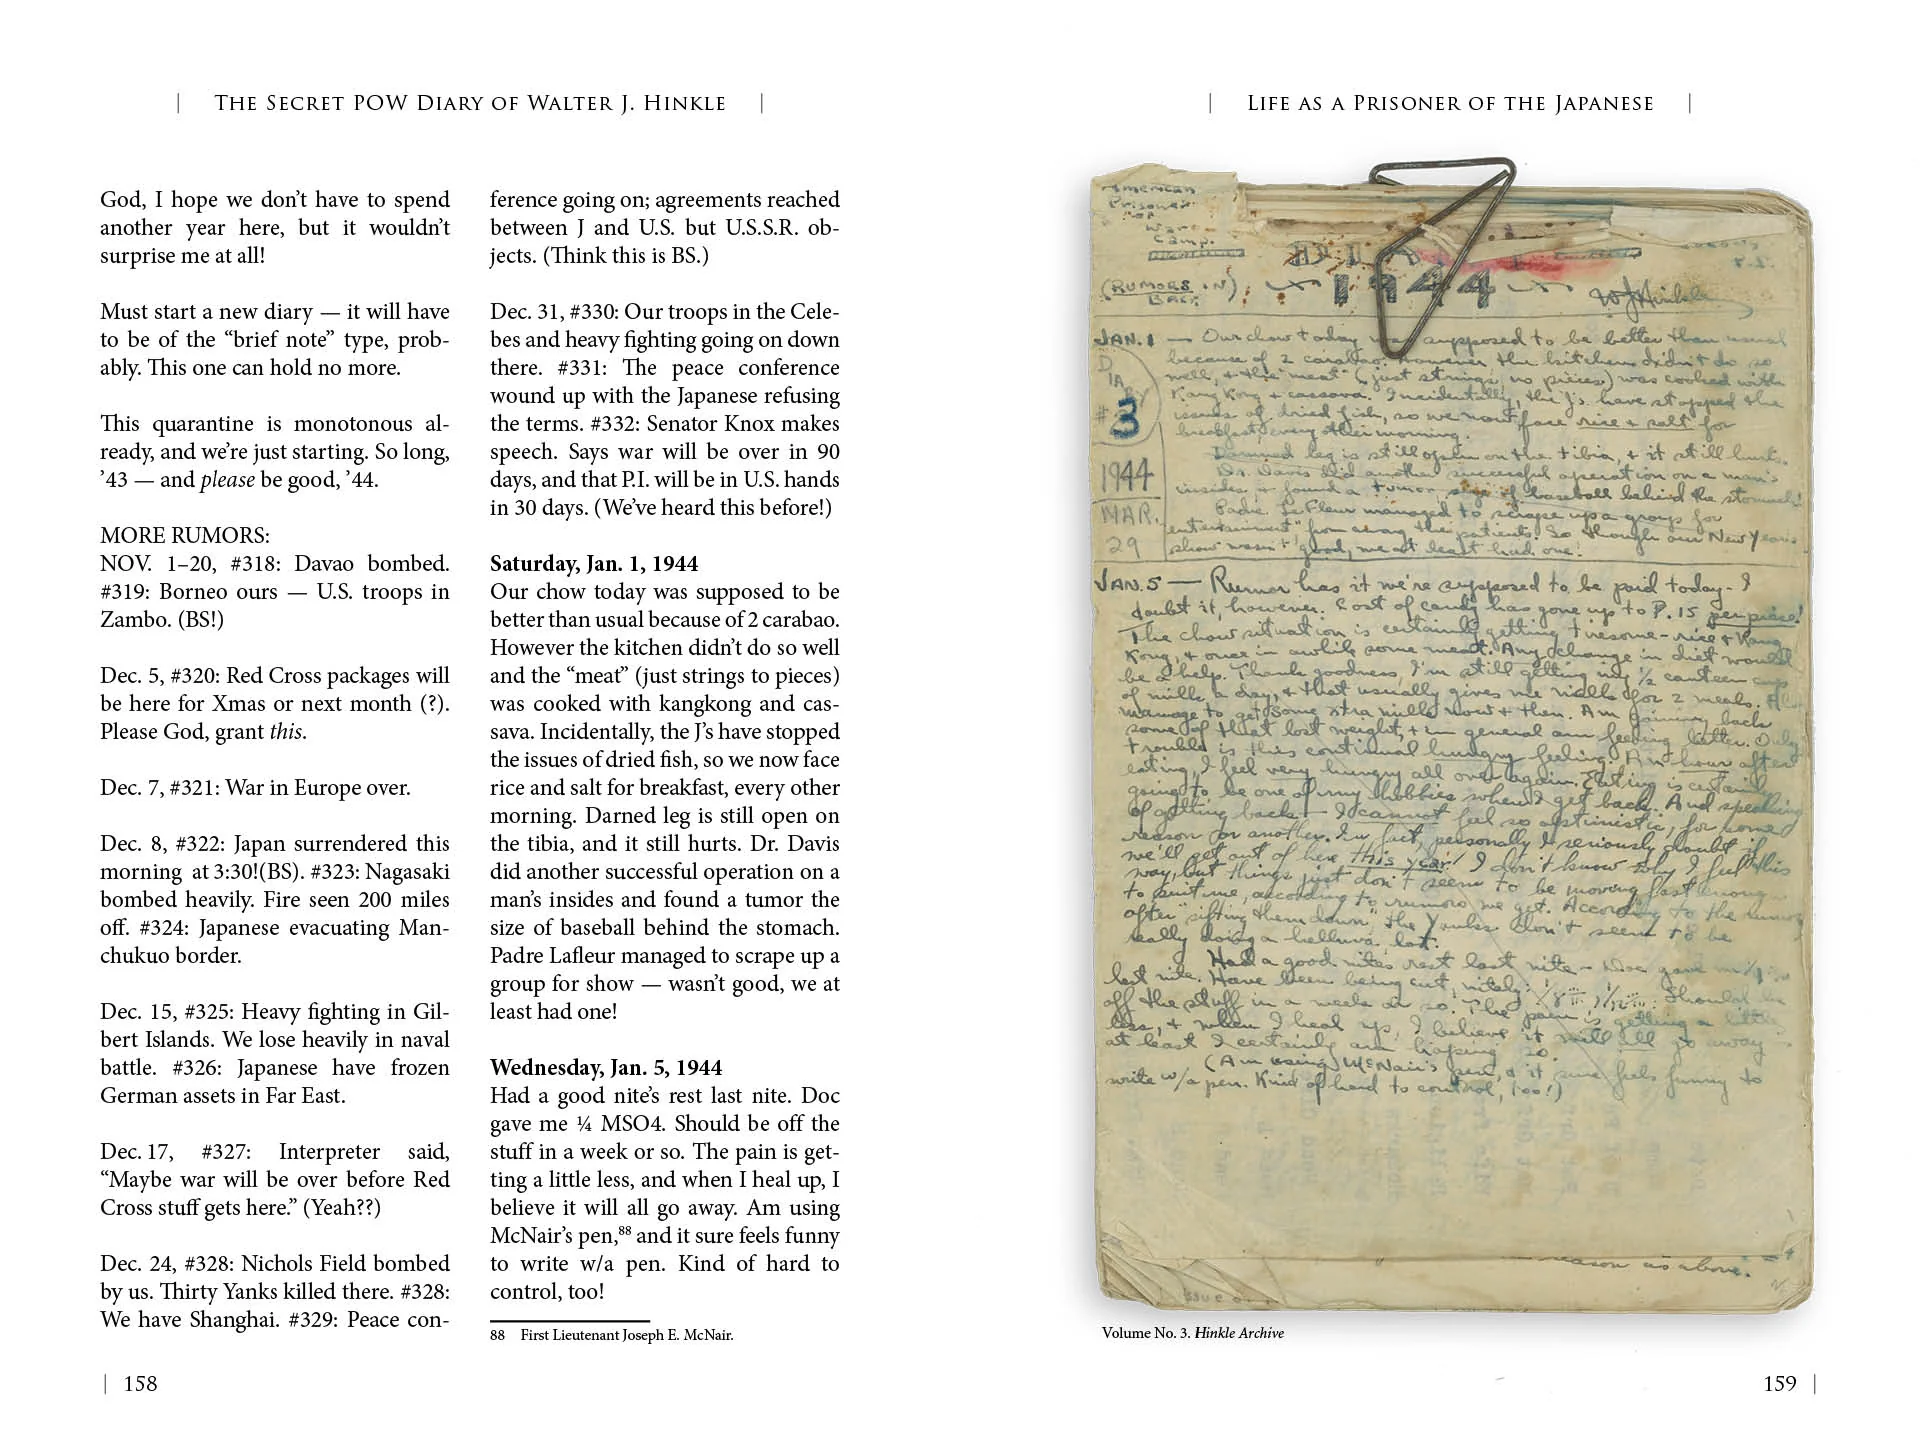 THE SECRET POW DIARY OF WALTER J. HINKLE
God, I hope we don’t have to spend
another year here, but it wouldn’t
surprise me at all!
Must start a new diary — it will have
to be of the “brief note” type, prob-
ably. This one can hold no more.
This quarantine is monotonous al-
ready, and we’re just starting. So long,
’43 — and please be good, ’44.
MORE RUMORS:
NOV. 1–20, #318: Davao bombed.
#319: Borneo ours — U.S. troops in
Zambo. (BS!)
Dec. 5, #320: Red Cross packages will
be here for Xmas or next month (?).
Please God, grant this.
Dec. 7, #321: War in Europe over.
Dec. 8, #322: Japan surrendered this
morning at 3:30!(BS). #323: Nagasaki
bombed heavily. Fire seen 200 miles
off. #324: Japanese evacuating Man-
chukuo border.
Dec. 15, #325: Heavy fighting in Gil-
bert Islands. We lose heavily in naval
battle. #326: Japanese have frozen
German assets in Far East.
Dec. 17, #327: Interpreter said,
“Maybe war will be over before Red
Cross stuff gets here.” (Yeah??)
Dec. 24, #328: Nichols Field bombed
by us. Thirty Yanks killed there. #328:
We have Shanghai. #329: Peace con-
ference going on; agreements reached
between J and U.S. but U.S.S.R. ob-
jects. (Think this is BS.)
Dec. 31, #330: Our troops in the Cele-
bes and heavy fighting going on down
there. #331: The peace conference
wound up with the Japanese refusing
the terms. #332: Senator Knox makes
speech. Says war will be over in 90
days, and that P.I. will be in U.S. hands
in 30 days. (We’ve heard this before!)
Saturday, Jan. 1, 1944
Our chow today was supposed to be
better than usual because of 2 carabao.
However the kitchen didn’t do so well
and the “meat” (just strings to pieces)
was cooked with kangkong and cas-
sava. Incidentally, the J’s have stopped
the issues of dried fish, so we now face
rice and salt for breakfast, every other
morning. Darned leg is still open on
the tibia, and it still hurts. Dr. Davis
did another successful operation on a
man’s insides and found a tumor the
size of baseball behind the stomach.
Padre Lafleur managed to scrape up a
group for show — wasn’t good, we at
least had one!
Wednesday, Jan. 5, 1944
Had a good nite’s rest last nite. Doc
gave me ¼ MSO4. Should be off the
stuff in a week or so. The pain is get-
ting a little less, and when I heal up, I
believe it will all go away. Am using
McNair’s pen,88 and it sure feels funny
to write w/a pen. Kind of hard to
control, too!
88 First Lieutenant Joseph E. McNair.
158
LIFE AS A PRISONER OF THE JAPANESE
American
Prisoner
of
War
Camp.
1944
(RUMORS IN
BACK
WJHinkle
JAN. 1 — Our chow today was supposed to be better than usual
because of 2 carabao. However the kitchen didn't do so
well, & the "meat" (just strings, no pieces) was cooked with
Kang Kong & cassava. Incidentally, the J's have stopped the
issues of dried fish, so we now face rice & salt for
breakfast, every other morning.
DIARY
#3
1944
MAR.
29
Damned leg is still open on the tibia, & it still hurts.
Dr. Davis did another successful operation on a man's
insides, & found a tumor, size of baseball behind the stomach!
Padre La Fleur managed to scrape up a group for
"entertainment" from among the patients. So though our New Years
show wasn't good, we at least had one!
JAN. 5 — Rumor has it we're supposed to be paid today - I
doubt it, however. Cost of candy has gone up to P. 15 per piece!
The chow situation is certainly getting tiresome - rice & Kang
Kong, & once in awhile some meat. Any change in diet would
be a help. Thank goodness, I'm still getting my ½ canteen cup
of milk a day, & that usually gives me milk for 2 meals.
manage to get some xtra milk now & then. Am gaining back
some of that lost weight, & in general am feeling better. Only
trouble is this continual hungry feeling. An hour after
eating, I feel very hungry all over again. Eating is certainly
going to be one of my hobbies when I get back. And speaking
of getting back - I cannot feel so optimistic, for some
reason or another. In fact, personally I seriously doubt if
we'll get out of here this year! I don't know why I feel this
way, but things just don't seem to be moving fast enough
to suit me, according to rumors we get. According to the rumors
after "sifting them down", the Yanks don't seem to be
really doing a helluva lot.
Had a good nites rest last nite - Doc gave me
last nite. Have been being cut, nitely: Should be
off the stuff in a week or so. The pain is getting a little
less, & when I heal up, I believe it will all go away
at least I certainly am hoping so.
(Am using McNair's pen, & it sure feels funny to
write w/a pen. Kind of hard to control, too!)
reason as above.
Volume No. 3. Hinkle Archive
159